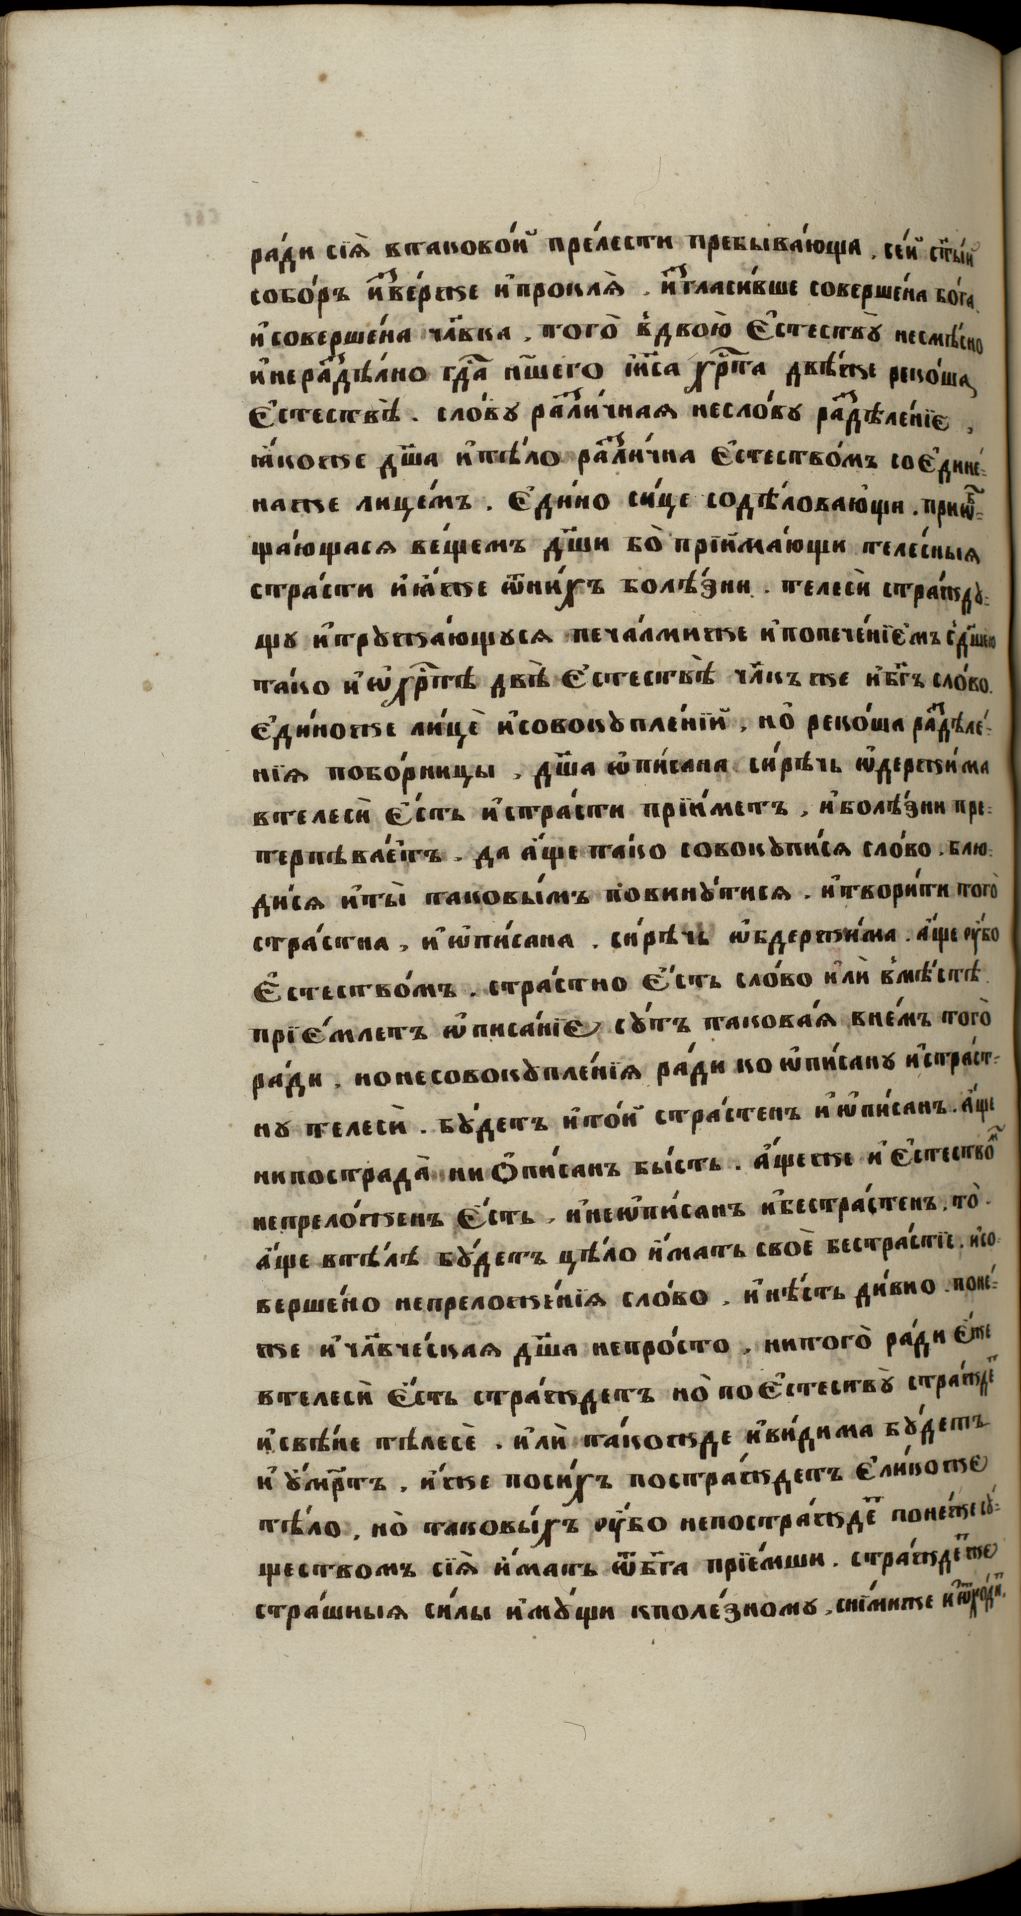 ра́ди сїѧ̀ втаково́й пре́лести пребыва́юща , се́й ст҃ы́й
собо́ръ и҆зве́рже и҆проклѧ̀ . и҆гласи́вше соверше́на бо́га
и҆соверше́на чл҃вка , того̀ в̾двою̀ Є҆стествꙋ̀ несмѣ́сно
и҆неразд̾ѣ́лно гдⷭ҇а н҃шего іи҃са хрⷭ҇та двѣ́же реко́ша
Є҆стествѣ̀ . сло́вꙋ разли́чнаѧ несло́вꙋ раздѣле́нїє ,
ꙗ҆́коже дш҃а и҆тѣ́ло разли́чна Є҆стество́мъ соЄ҆дине́-
наже лице́мъ . Є҆ди́но си́це содѣ́ловаю҆щи . приѡ҆б-
ща́ющасѧ ве́щемъ дш҃и бо̀ прїи́ма́ющи теле́сныѧ
стра́сти и҆ꙗ҆́же ѿни́хъ болѣ́зни . телесѝ стра́ждꙋ-
щꙋ и҆трꙋжа́ющꙋсѧ печа́лмиже и҆попече́нїЄмъ с̾дш҃ею
та́ко и҆ѡ҆хрⷭ҇тѣ̀ двѣ̀ Є҆стествѣ̀ чл҃къ же и҆бг҃ъ сло́во .
Є҆ди́ноже лицѐ и҆совокꙋпле́нїй , но̀ реко́ша раздѣле́-
нїѧ побо́рницы , дш҃а ѡ҆пи́сана си́рѣчь ѡ҆держи́ма
втелесѝ Є҆́сть и҆стра́сти прїи́метъ , и҆болѣ́зни пре-
терпѣвае́тъ . да а҆́ще та́ко совокꙋпи́сѧ сло́во . блю-
ди́сѧ и҆ты̀ таковы́мъ повинꙋ́тисѧ . и҆твори́ти того̀
стра́стна , и҆ѡ҆пи́сана . си́рѣчь ѡ҆бдержи́ма . а҆́ще оу҆́бо
Є҆стество́мъ . стра́стно Є҆́сть сло́во и҆лѝ в̾мѣ́стѣ
прїЄ́млетъ ѡ҆писа́нїє , сꙋ́тъ такова́ѧ вне́мъ того̀
ра́ди , нонесовокꙋпле́нїѧ ра́ди ко ѡ҆пи́санꙋ и҆стра́ст-
нꙋ телесѝ . бꙋ́детъ и҆то́й стра́стенъ и҆ѡ҆пи́санъ . а҆́ще
нипострада̀ ни Ѻ҆пи́санъ бы́сть . а҆́щеже и҆ Є҆стество́м
непрело́женъ Є҆́сть , и҆неѡ҆пи́санъ и҆бестра́стенъ , то̀ .
а҆́ще втѣ́лѣ бꙋ́детъ цѣ́ло и҆́мать своѐ бестра́стїе . и҆со-
верше́но непреложе́нїѧ сло́во , и҆нѣ́сть ди́вно . поне́-
же и҆ чл҃вческаѧ дш҃а непро́сто , нитого̀ ра́ди Є҆́же
втелесѝ Є҆́сть стра́ждетъ но̀ поЄ҆стествꙋ̀ стра́ждет
и҆свѣ́не тѣлесѐ . и҆лѝ та́кожде и҆ви́дима бꙋ́детъ
и҆ ꙋ҆́мрⷭ҇тъ , и҆́же поси́хъ постра́ждетъ Є҆ли́коже
тѣ́ло , но̀ таковы́хъ оу҆́бо непостра́ждет поне́же сꙋ-
ществомъ сїѧ̀ и҆́мать ѿбг҃а прїе́мши . стра́ждетже
стра́шныѧ си́лы и҆мꙋ́щи кполе́зномꙋ , сни́миже и҆ѿхо́дит